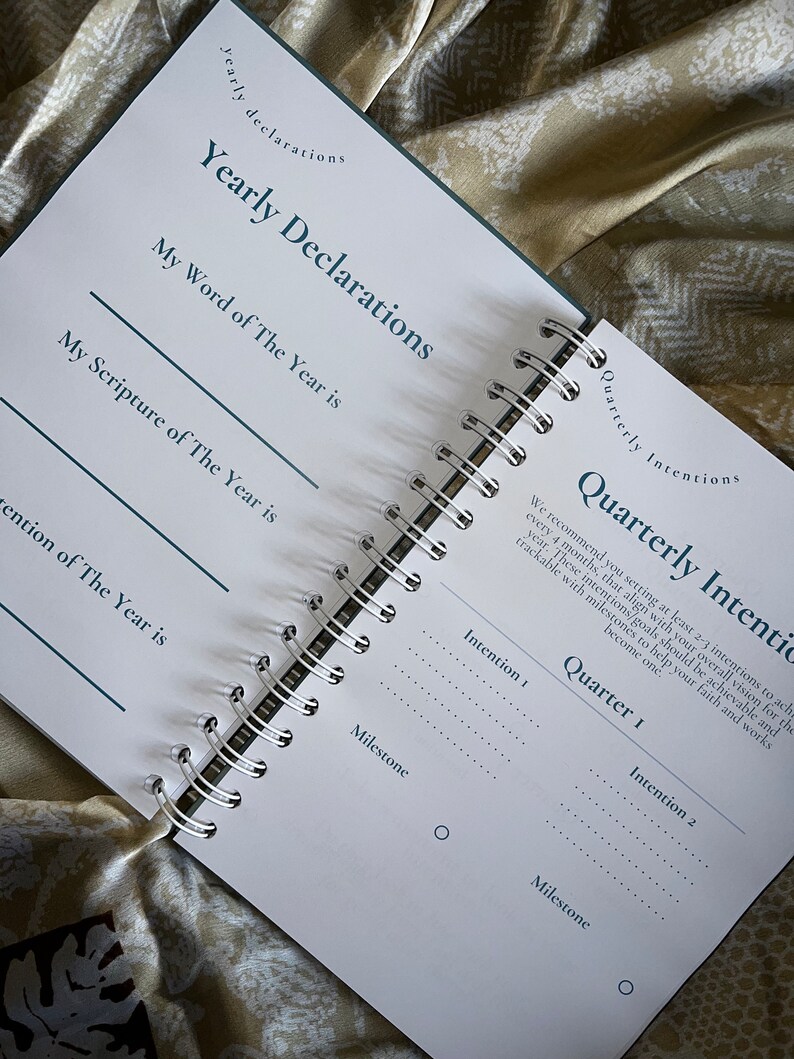 yearly declarations
Yearly Declarations
My Word of The Year is
My Scripture of The Year is
of The Year is
Quarterly Intentions
Quarterly
We recommend you setting at least 2-3 intentions to
every 4 months, that align with your overall vision for the
year. These intentions/goals should be achievable and
trackable with milestones to help your faith and works
become one.
Quarter 1
Intention 1
Milestone
Intention 2
Milestone